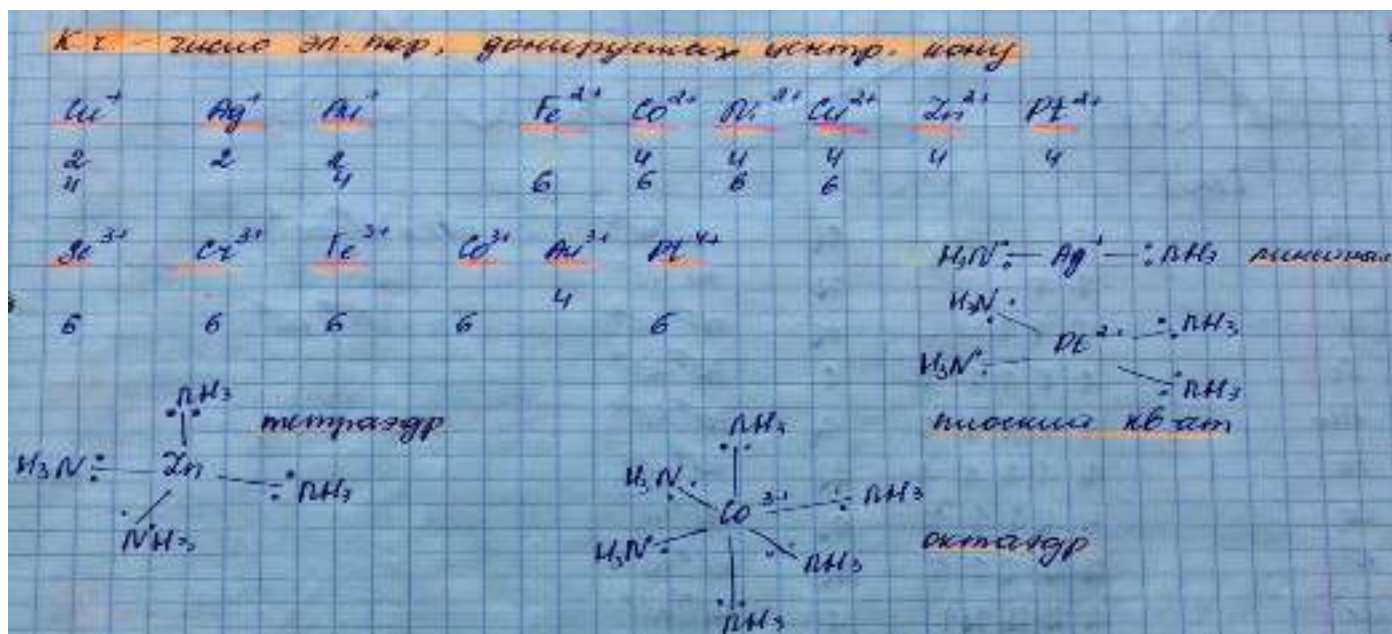 К.ч. - число эл. пар, донируемых центр. иону
Cu⁺ Ag⁺ Au⁺ Fe²⁺ Co²⁺ Ni²⁺ Cu²⁺ Zn²⁺ Pt²⁺
2 2 2 4 4 4 4 4
4 4 6 6 6 6
Sc³⁺ Cr³⁺ Fe³⁺ Co³⁺ Au³⁺ Pt⁴⁺
4
6 6 6 6 6
H₃N: — Ag⁺ — :NH₃ линейная
H₃N: :NH₃
Pt²⁺
H₃N: :NH₃
плоский кв-ат
NH₃
тетраэдр
H₃N: Zn :NH₃
NH₃
NH₃
H₃N: :NH₃
Co³⁺
H₃N: :NH₃
NH₃
октаэдр